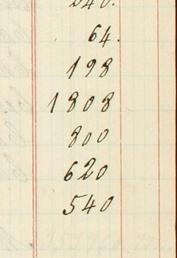 64.
198
1808
800
620
540